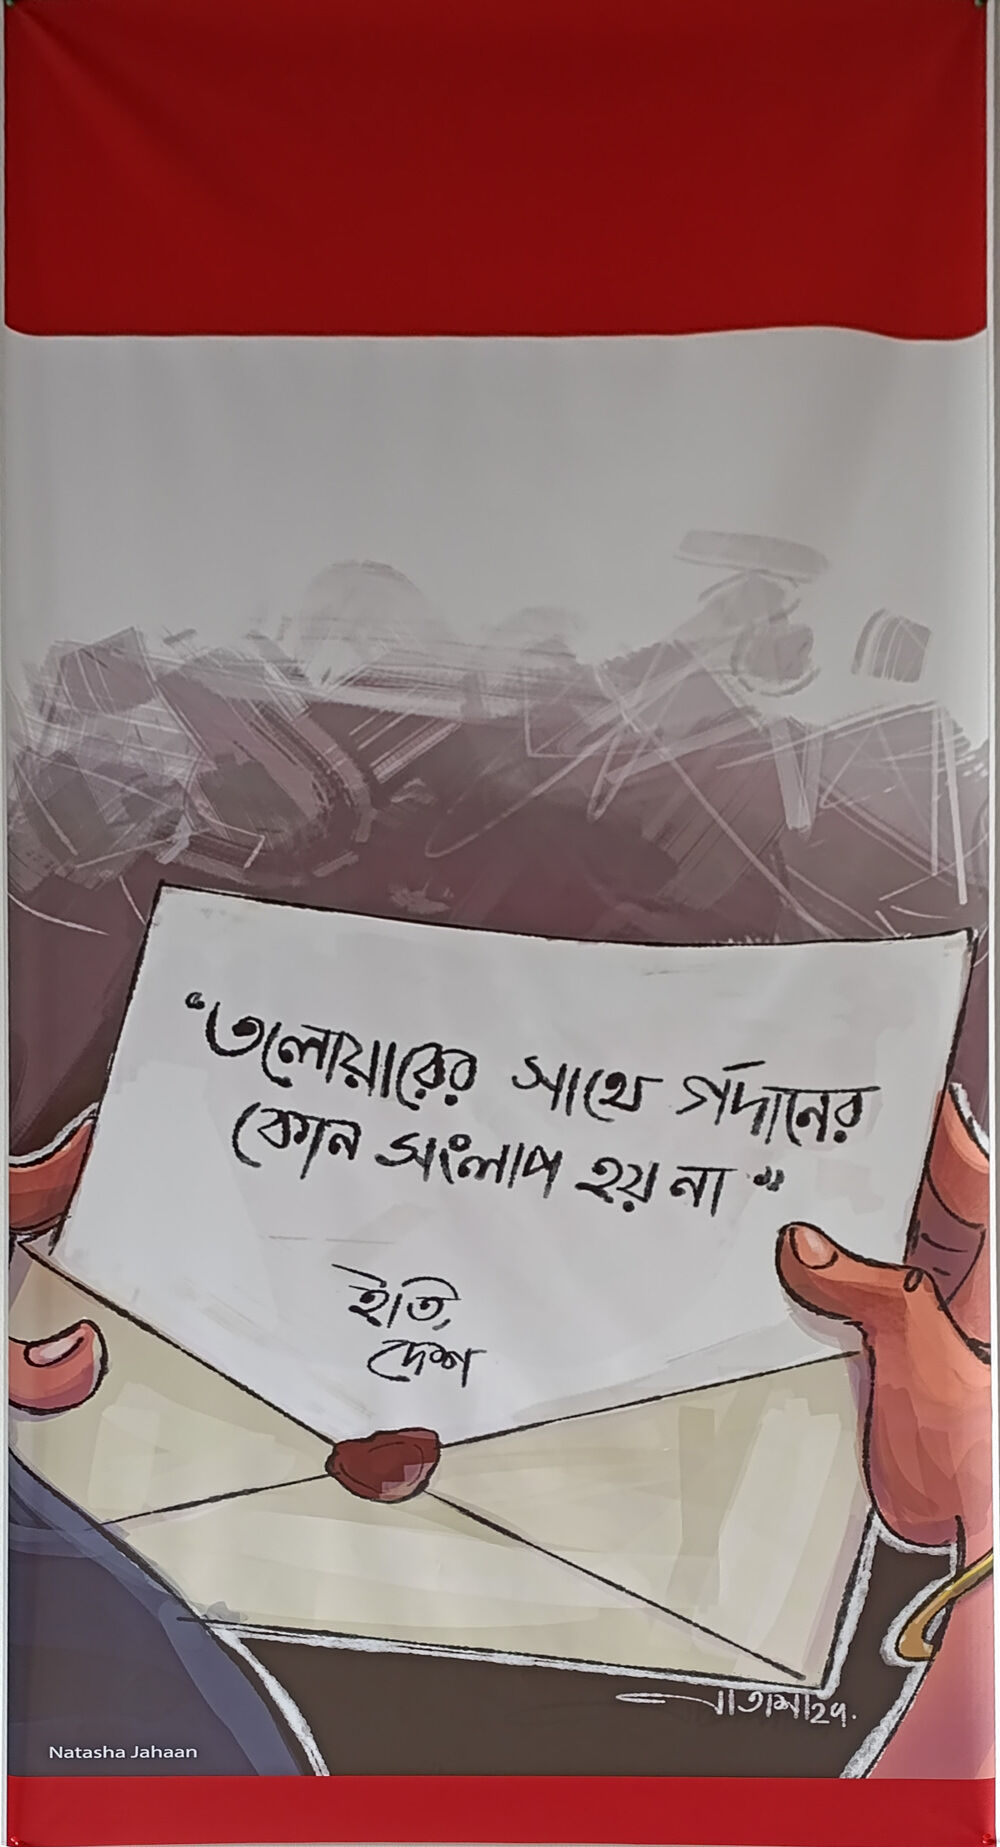 “তলোয়ারের সাথে গর্দানের
কোন সংলাপ হয় না”
ইতি,
দেশ
নাতাশা ২৭.
Natasha Jahaan